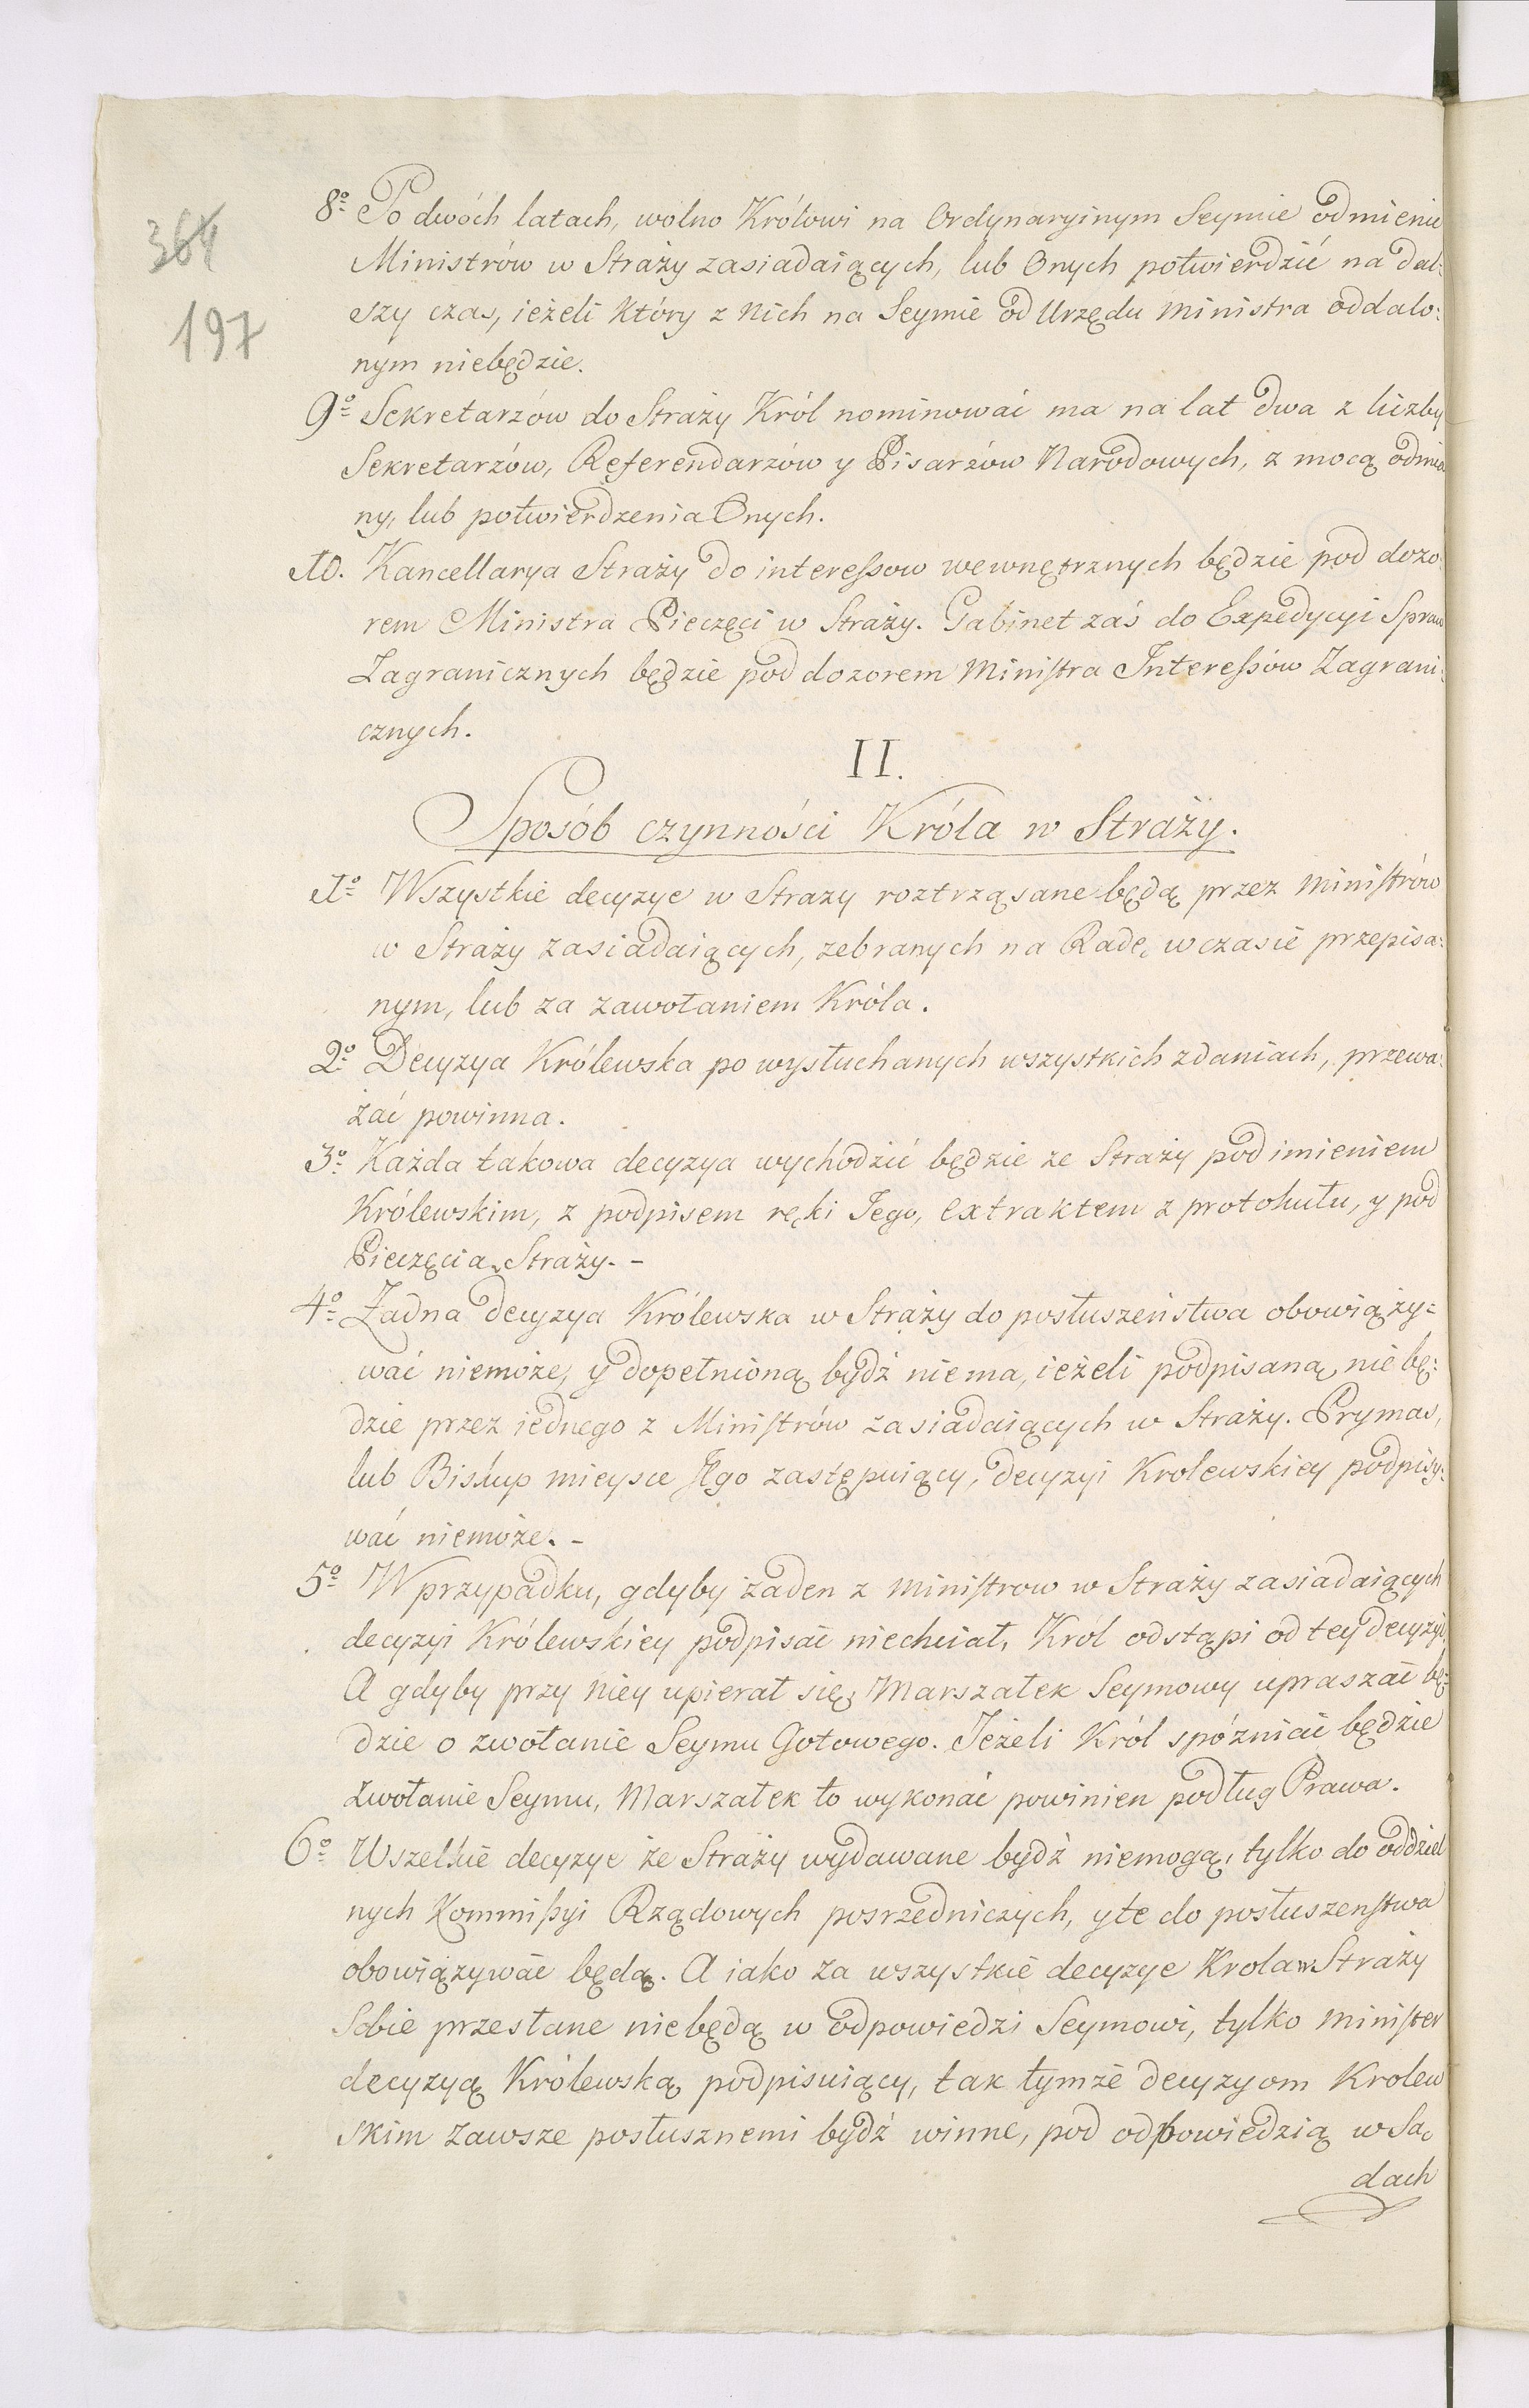 364
197
8º Po dwóch latach, wolno Królowi na Ordynaryinym Seymie odmienić
Ministrów w Straży zasiadaiących, lub Onych potwierdzić na dal:
szy czas, ieżeli który z Nich na Seymie od Urzędu Ministra oddalo:
nym niebędzie.
9º Sekretarzów do Straży Król nominować ma na lat dwa z liczby
Sekretarzów, Referendarzów y Pisarzów Narodowych, z mocą odmia
ny, lub potwierdzenia Onych.
10. Kancellarya Straży do interessow wewnętrznych będzie pod dozo:
rem Ministra Pieczęci w Straży. Gabinet zaś do Expedycyi Spraw
Zagranicznych będzie pod dozorem Ministra Interessów Zagrani:
cznych.
II.
Sposób czynności Króla w Straży.
1º Wszystkie decyzye w Strazy roztrząsane będą przez Ministrów
w Straży zasiadaiących, zebranych na Radę, w czasie przepisa:
nym, lub za zawołaniem Króla.
2º Decyzya Królewska po wysłuchanych wszystkich zdaniach, przewa:
żać powinna.
3º Każda takowa decyzya wychodzić będzie ze Straży pod imieniem
Królewskim, z podpisem ręki Jego, extraktem z protokułu, y pod
Pieczęcią Straży. -
4º Żadna decyzya Królewska w Straży do posłuszeństwa obowiąży=
wać niemoże, y dopełnioną bydź niema, ieżeli podpisaną nie bę:
dzie przez iednego z Ministrów zasiadaiących w Straży. Prymas,
lub Biskup mieysce Jego zastępuiący, decyzyi Krolewskiey podpisy:
wać niemoże. -
5º W przypadku, gdyby żaden z Ministrow w Straży zasiadaiących
decyzyi Królewskiey podpisać niechciał, Król odstąpi od tey decyzyi,
A gdyby przy niey upierał się, Marszałek Seymowy upraszać bę:
dzie o zwołanie Seymu Gotowego. Jeżeli Król spóźniać będzie
zwołanie Seymu, Marszałek to wykonać powinien podług Prawa.
6º Wszelkie decyzye ze Straży wydawane bydź niemogą, tylko do oddziel
nych Kommissyi Rządowych posrzedniczych, y te do posłuszenstwa
obowiązywać będą. A iako za wszystkie decyzye Krola w Straży
Sobie przesłane niebędą w odpowiedzi Seymowi, tylko Minister
decyzyą Królewską podpisuiący, tak tymże decyzyom Krolew
skim zawsze posłusznemi bydź winne, pod odpowiedzią w Są
dach